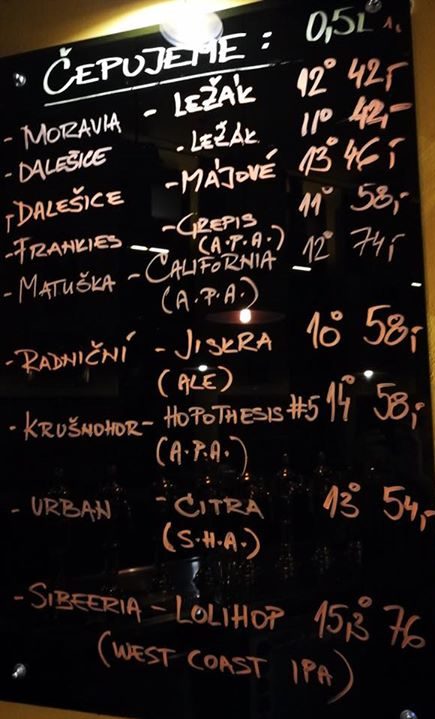 ČEPUJEME: 0,5L
- MORAVIA - LEŽÁK 12° 42,-
- DALEŠICE - LEŽÁK 11° 42,-
- DALEŠICE - MÁJOVÉ 13° 46,-
- FRANKIES - GREPIS 11° 58,-
(A.P.A.)
- MATUŠKA - CALIFORNIA 12° 74,-
(A.P.A.)
- RADNIČNÍ - JISKRA 10° 58,-
(ALE)
- KRUŠNOHOR - HOPOTHESIS #5 14° 58,-
(A.P.A.)
- URBAN - CITRA 13° 54,-
(S.H.A.)
- SIBEERIA - LOLIHOP 15,3° 76
(WEST COAST IPA)